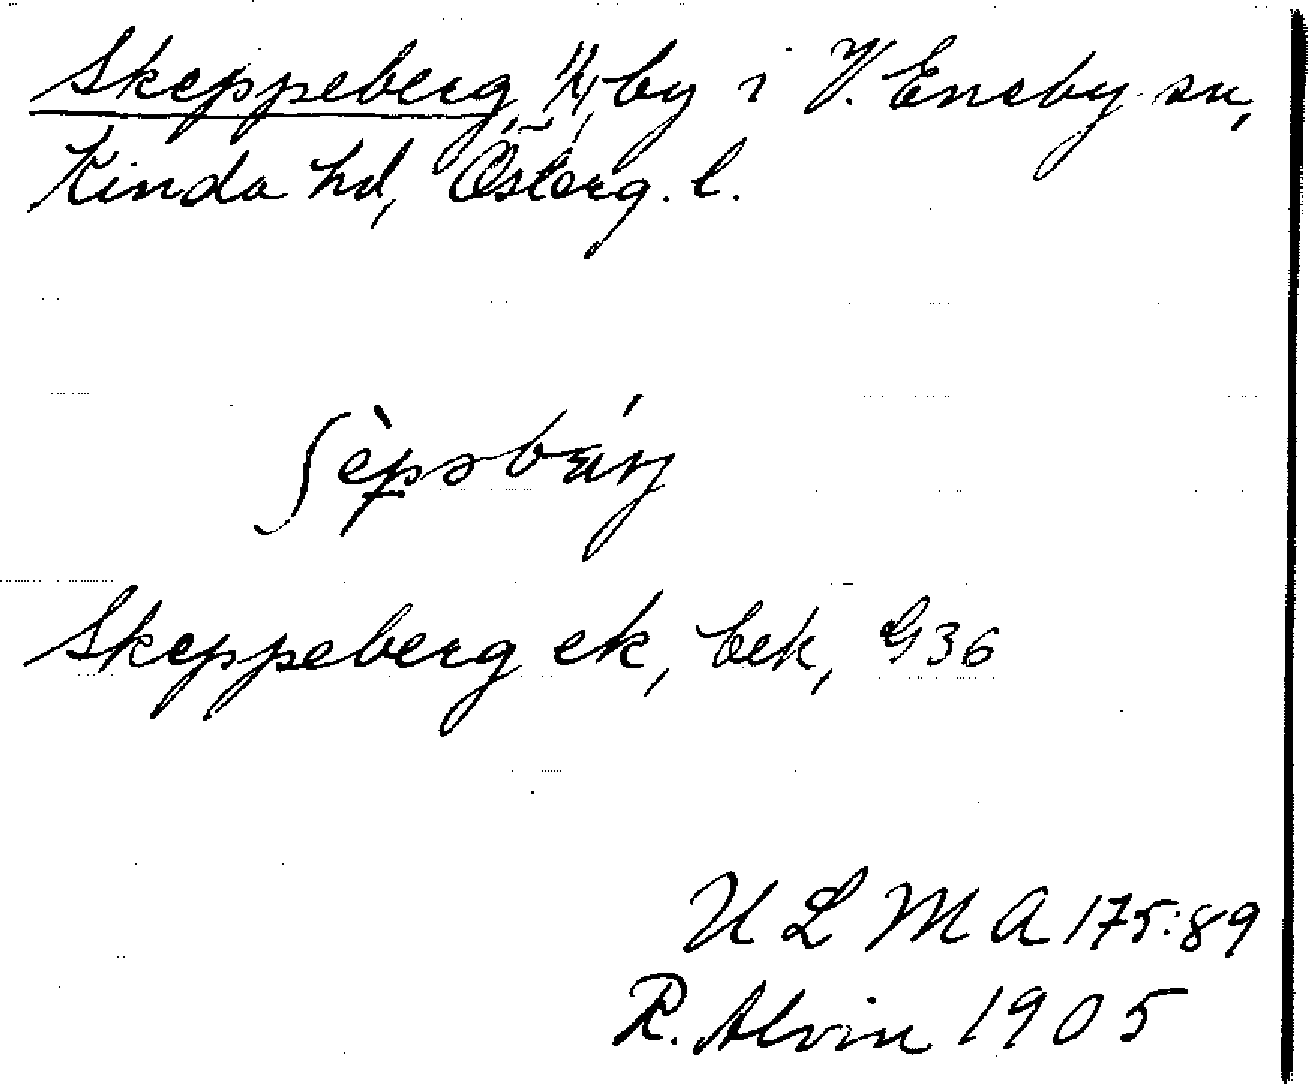 Skeppeberg, 1/1, by i V. Eneby sn,
Kinda hd, Österg. l.
ʃèpəbærj
Skeppeberg ek, bek, G36
ULMA 175:89
R. Alvin 1905